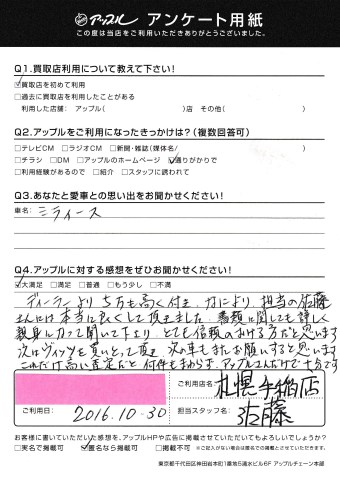 アップル アンケート用紙
この度は当店をご利用いただきありがとうございました。
Q1.買取店利用について教えて下さい!
☑買取店を初めて利用
□過去に買取店を利用したことがある
利用した店舗: アップル( )店 その他( )
Q2.アップルをご利用になったきっかけは?(複数回答可)
□テレビCM □ラジオCM □新聞・雑誌(媒体名/ )
□チラシ □DM □アップルのホームページ ☑通りがかりで
□利用経験があるので □紹介 □スタッフに誘われて
Q3.あなたと愛車との思い出をお聞かせください!
車名: ミライース
Q4.アップルに対する感想をぜひお聞かせください!
☑大満足 □満足 □普通 □もう少し □不満
ディーラーより5万も高く付き、なにより、担当の佐藤
さんには本当に良くして頂きました。書類に関しても詳しく
親身になって聞いて下さり、とても信頼のおける方だと思います
次はヴィッツを買いとって頂き、次の車もまたお願いすると思います
これだけ高い査定だと何件もまわらず、アップルさんだけで十分です
ご利用店名 札幌手稲店
ご利用日: 2016.10-30
担当スタッフ名: 佐藤
お客様に書いていただいた感想を、アップルHPや広告に掲載させていただいてもよろしいでしょうか?
□実名で掲載可 ☑匿名なら掲載可 □掲載不可 ※ご記入がない場合は匿名での掲載とさせていただきます。
東京都千代田区神田岩本町1番地5清水ビル6F アップルチェーン本部